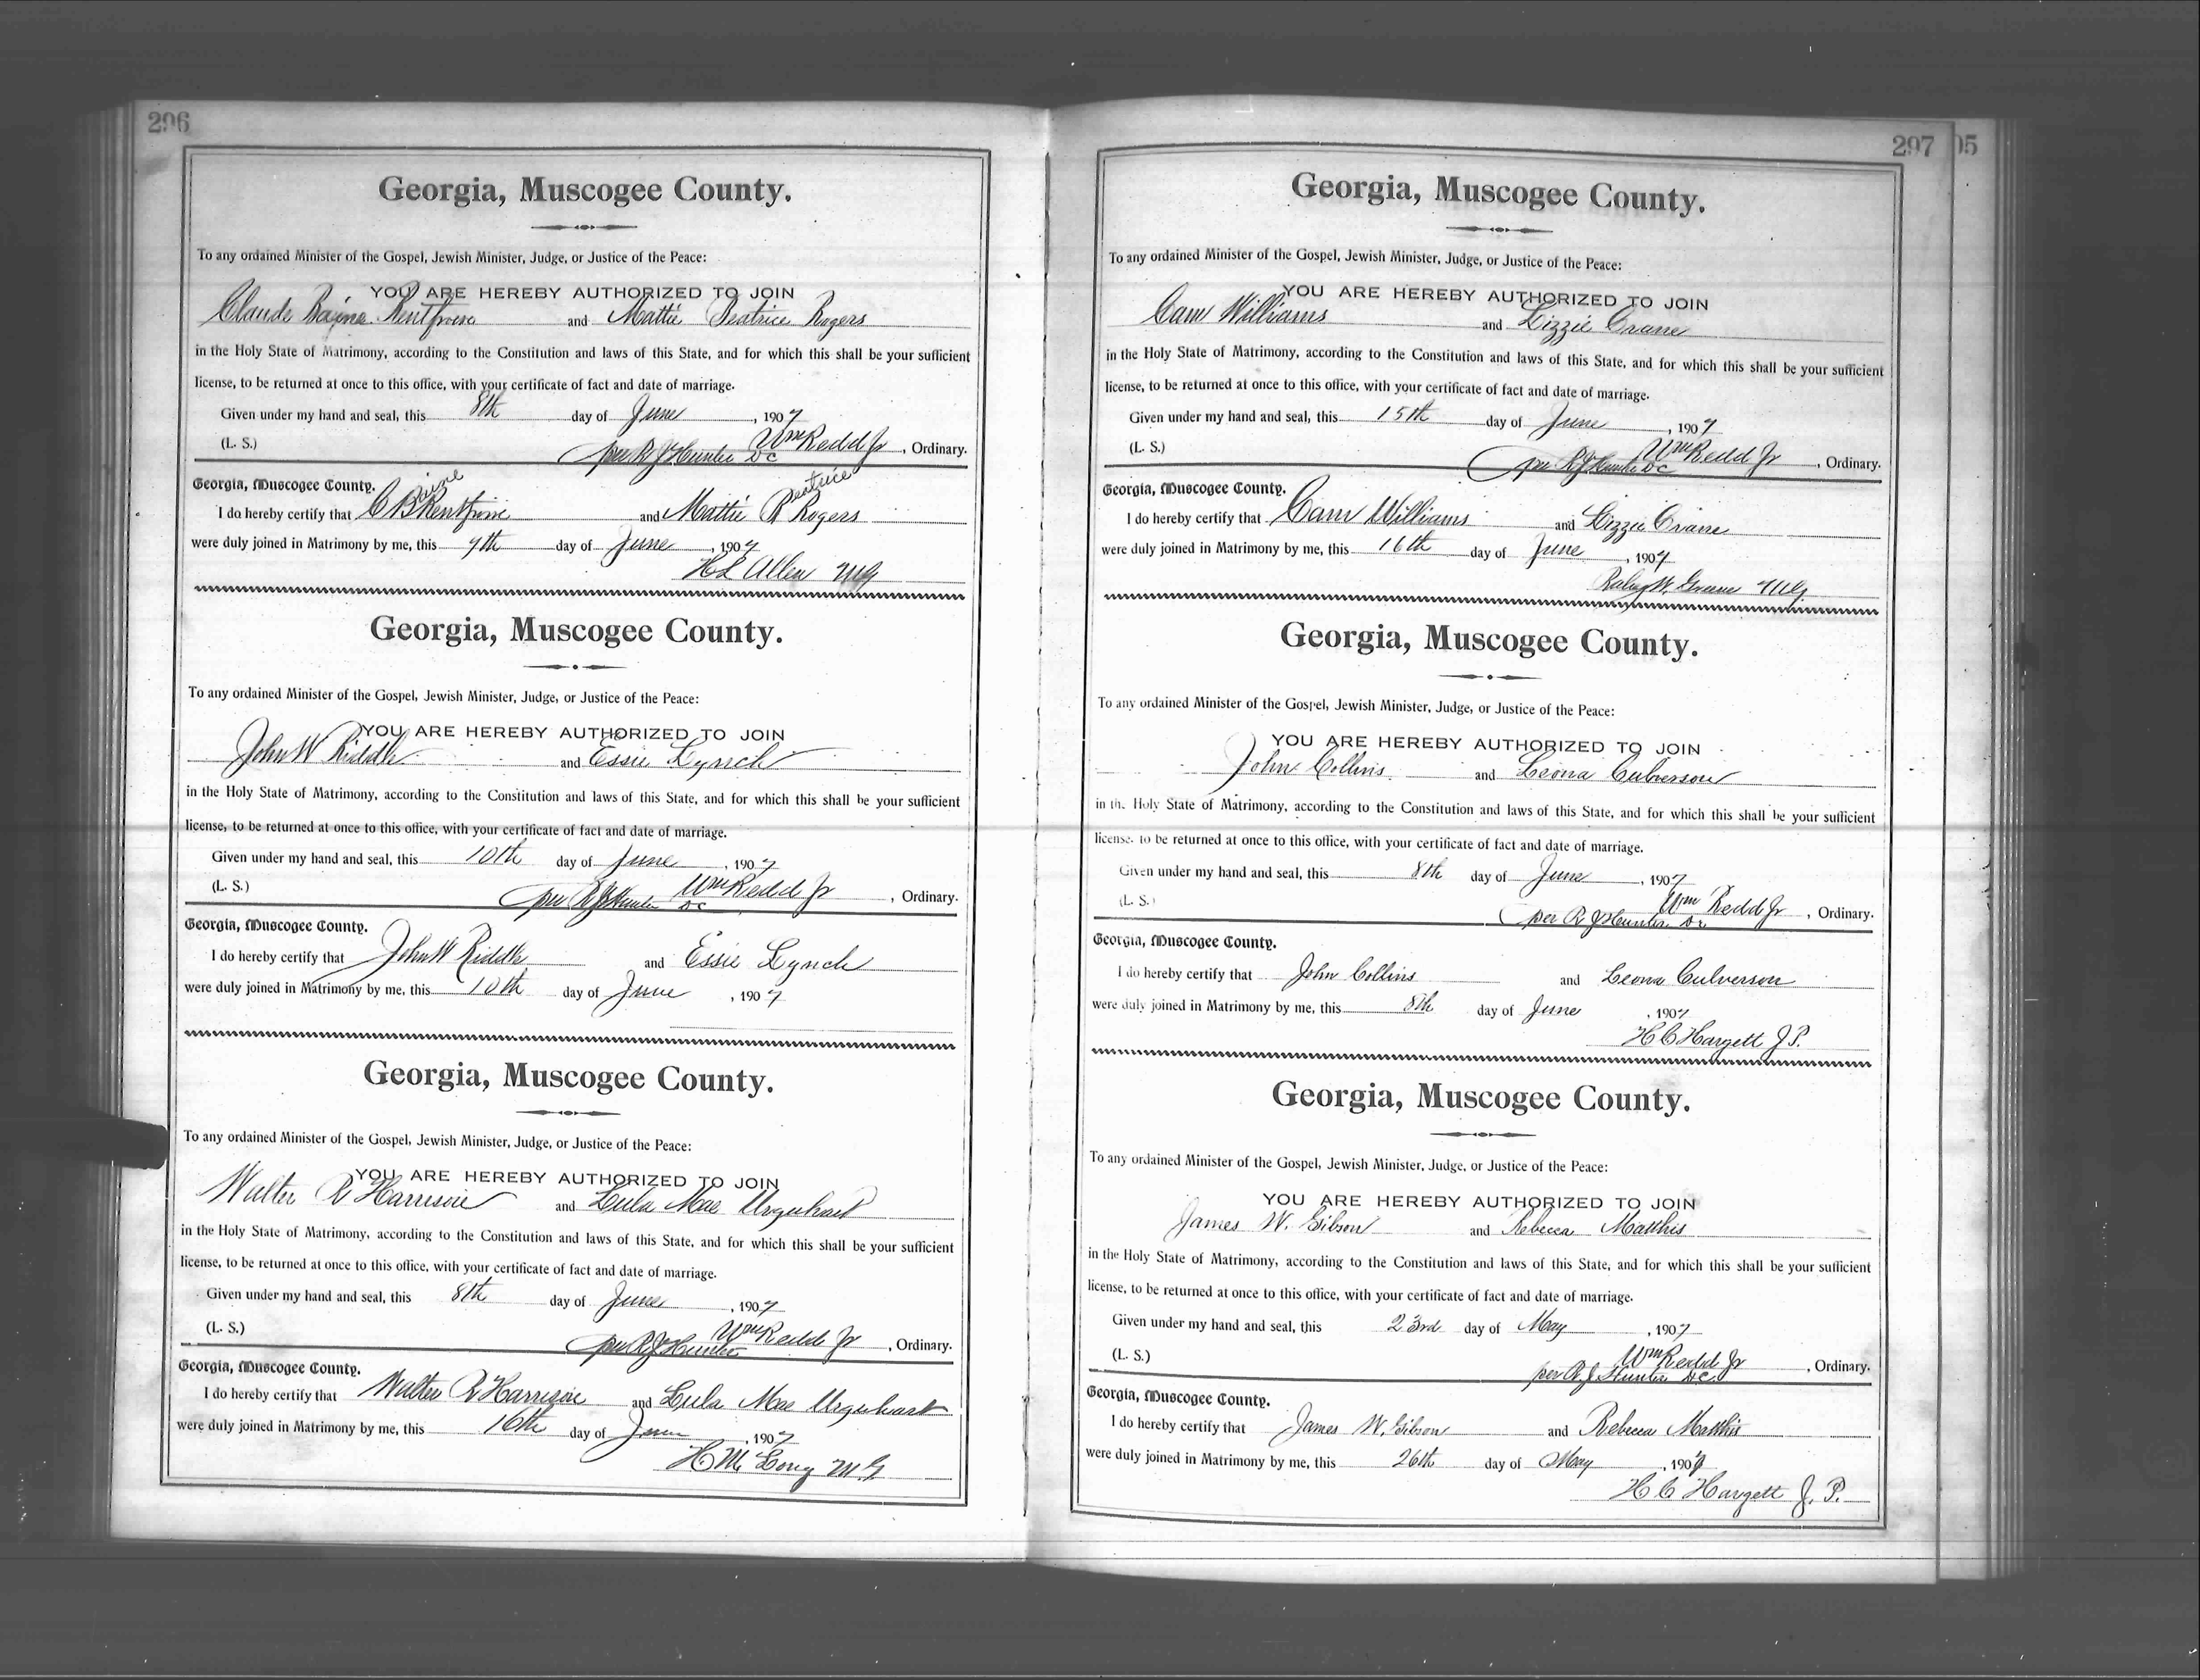 296
Georgia, Muscogee County.
To any ordained Minister of the Gospel, Jewish Minister, Judge, or Justice of the Peace:
YOU ARE HEREBY AUTHORIZED TO JOIN
Claude Baine Rentfrow and Mattie Beatrice Rogers
in the Holy State of Matrimony, according to the Constitution and laws of this State, and for which this shall be your sufficient
license, to be returned at once to this office, with your certificate of fact and date of marriage.
Given under my hand and seal, this 8th day of June, 1907
(L. S.) Wm Redd Jr, Ordinary.
per R J Hunter DC
Georgia, Muscogee County.
I do hereby certify that C Baine Rentfrow and Mattie Beatrice Rogers
were duly joined in Matrimony by me, this 9th day of June, 1907
H L Allen MG
Georgia, Muscogee County.
To any ordained Minister of the Gospel, Jewish Minister, Judge, or Justice of the Peace:
YOU ARE HEREBY AUTHORIZED TO JOIN
John W Riddle and Essie Lynch
in the Holy State of Matrimony, according to the Constitution and laws of this State, and for which this shall be your sufficient
license, to be returned at once to this office, with your certificate of fact and date of marriage.
Given under my hand and seal, this 10th day of June, 1907
(L. S.) Wm Redd Jr, Ordinary.
per R J Hunter DC
Georgia, Muscogee County.
I do hereby certify that John W Riddle and Essie Lynch
were duly joined in Matrimony by me, this 10th day of June, 1907
Georgia, Muscogee County.
To any ordained Minister of the Gospel, Jewish Minister, Judge, or Justice of the Peace:
YOU ARE HEREBY AUTHORIZED TO JOIN
Walter R Harrison and Lula Mae Urquhart
in the Holy State of Matrimony, according to the Constitution and laws of this State, and for which this shall be your sufficient
license, to be returned at once to this office, with your certificate of fact and date of marriage.
Given under my hand and seal, this 8th day of June, 1907
(L. S.) Wm Redd Jr, Ordinary.
per R J Hunter
Georgia, Muscogee County.
I do hereby certify that Walter R Harrison and Lula Mae Urquhart
were duly joined in Matrimony by me, this 16th day of June, 1907
H M Long MG
297
05
Georgia, Muscogee County.
To any ordained Minister of the Gospel, Jewish Minister, Judge, or Justice of the Peace:
YOU ARE HEREBY AUTHORIZED TO JOIN
Cam Williams and Lizzie Crane
in the Holy State of Matrimony, according to the Constitution and laws of this State, and for which this shall be your sufficient
license, to be returned at once to this office, with your certificate of fact and date of marriage.
Given under my hand and seal, this 15th day of June, 1907
(L. S.) Wm Redd Jr, Ordinary.
per R J Hunter DC
Georgia, Muscogee County.
I do hereby certify that Cam Williams and Lizzie Crane
were duly joined in Matrimony by me, this 16th day of June, 1907
W. Greene MG
Georgia, Muscogee County.
To any ordained Minister of the Gospel, Jewish Minister, Judge, or Justice of the Peace:
YOU ARE HEREBY AUTHORIZED TO JOIN
John Collins and Leona Culverson
in the Holy State of Matrimony, according to the Constitution and laws of this State, and for which this shall be your sufficient
license, to be returned at once to this office, with your certificate of fact and date of marriage.
Given under my hand and seal, this 8th day of June, 1907
(L. S.) Wm Redd Jr, Ordinary.
per R J Hunter DC
Georgia, Muscogee County.
I do hereby certify that John Collins and Leona Culverson
were duly joined in Matrimony by me, this 8th day of June, 1907
H C Hargett J P.
Georgia, Muscogee County.
To any ordained Minister of the Gospel, Jewish Minister, Judge, or Justice of the Peace:
YOU ARE HEREBY AUTHORIZED TO JOIN
James W. Gibson and Rebecca Matthis
in the Holy State of Matrimony, according to the Constitution and laws of this State, and for which this shall be your sufficient
license, to be returned at once to this office, with your certificate of fact and date of marriage.
Given under my hand and seal, this 23rd day of May, 1907
(L. S.) Wm Redd Jr, Ordinary.
per R. J Hunter DC.
Georgia, Muscogee County.
I do hereby certify that James W. Gibson and Rebecca Matthis
were duly joined in Matrimony by me, this 26th day of May, 1907
H C Hargett J. P.